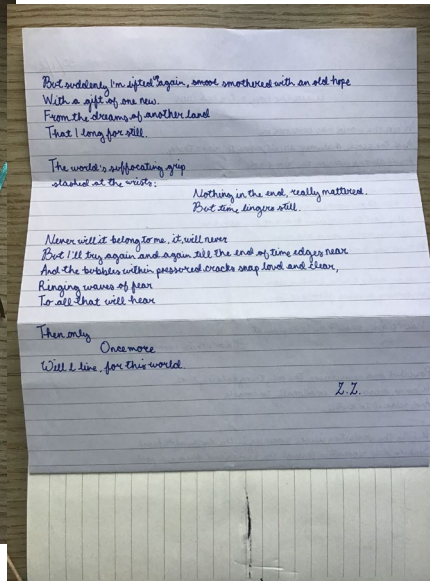 But suddenly I'm lifted up again, smoot smothered with an old hope
With a gift of one new.
From the dreams of another land
That I long for still.
The world's suffocating grip
slashed at the wrists;
Nothing in the end, really mattered.
But time lingers still.
Never will it belong to me, it will never
But I'll try again and again till the end of time edges near
And the bubbles within pressured cracks snap loud and clear,
Ringing waves of fear
To all that will hear
Then only
Once more
Will I live, for this world.
Z.Z.